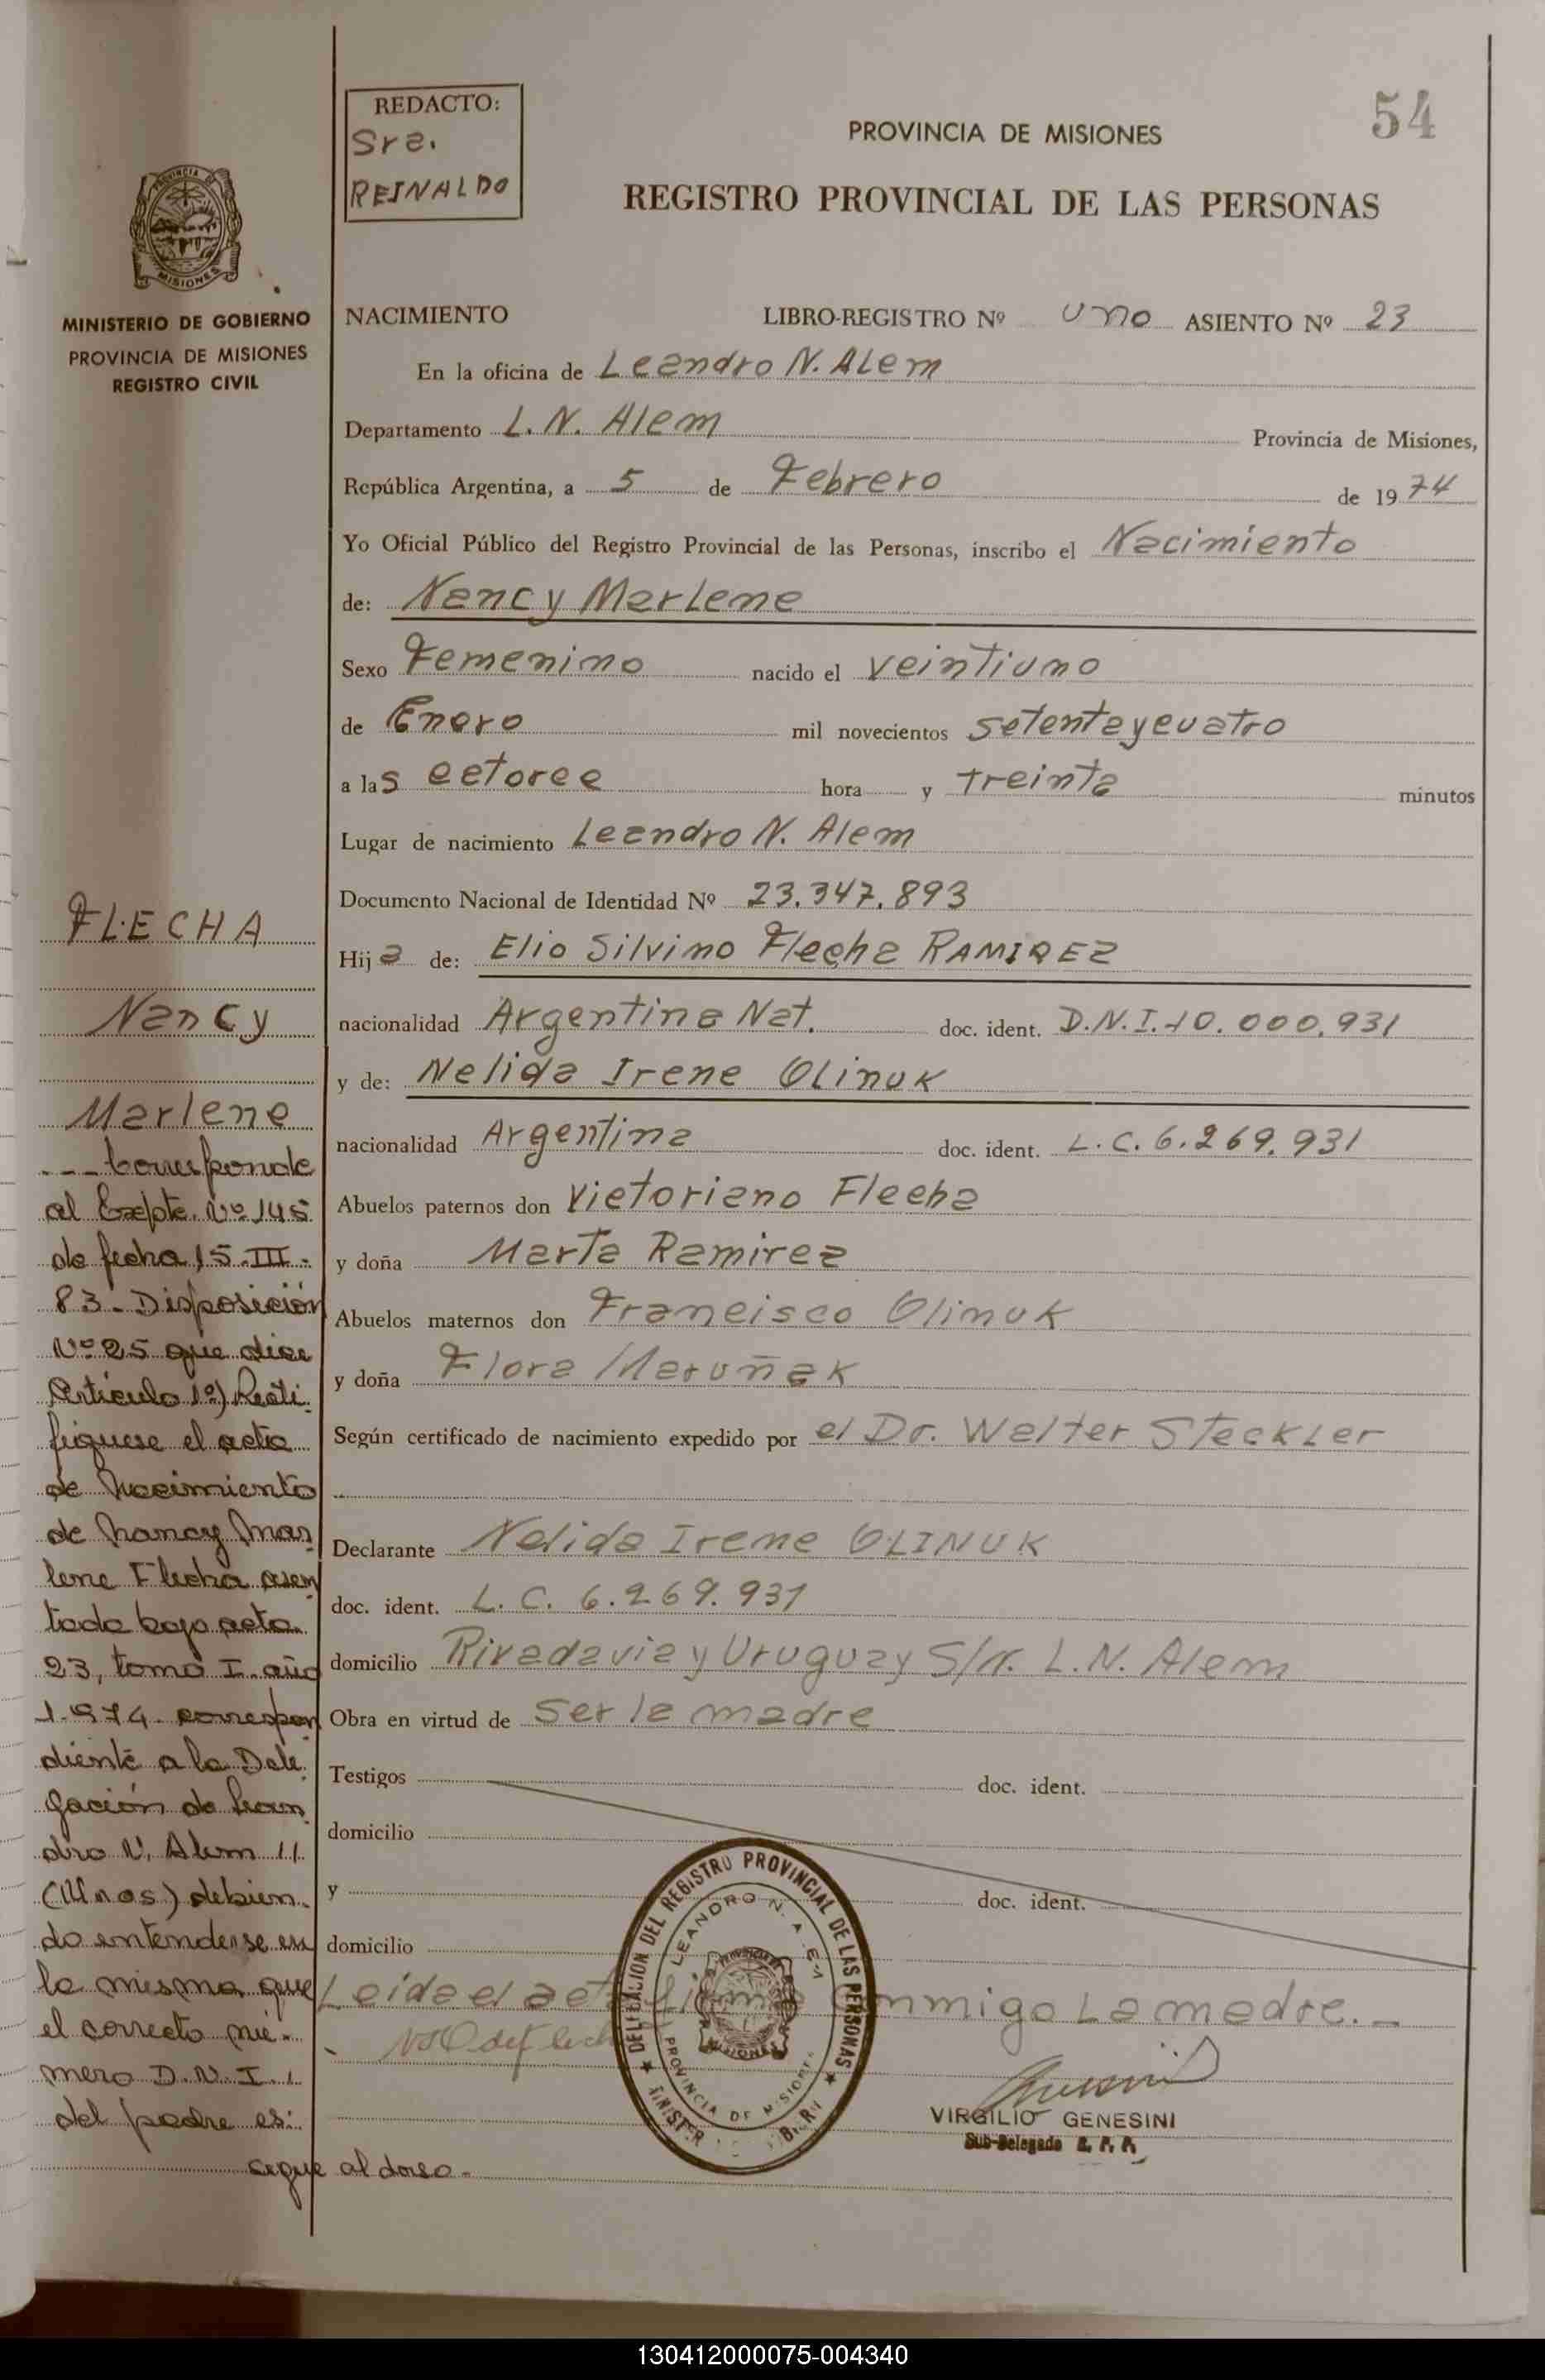 54
REDACTO:
Sra.
REINALDO
PROVINCIA DE MISIONES
REGISTRO PROVINCIAL DE LAS PERSONAS
PROVINCIA DE
MISIONES
MINISTERIO DE GOBIERNO
PROVINCIA DE MISIONES
REGISTRO CIVIL
NACIMIENTO LIBRO-REGISTRO Nº uno ASIENTO Nº 23
En la oficina de Leandro N. Alem
Departamento L. N. Alem Provincia de Misiones,
República Argentina, a 5 de Febrero de 1974
Yo Oficial Público del Registro Provincial de las Personas, inscribo el Nacimiento
de: Nancy Marlene
Sexo Femenino nacido el veintiuno
de Enero mil novecientos setenta y cuatro
a las catorce hora y treinta minutos
Lugar de nacimiento Leandro N. Alem
Documento Nacional de Identidad Nº 23.347.893
Hija de: Elio Silvino Flecha RAMIREZ
nacionalidad Argentina Nat. doc. ident. D.N.I. 10.000.931
y de: Nelida Irene Olinuk
nacionalidad Argentina doc. ident. L.C. 6.269.931
Abuelos paternos don Victoriano Flecha
y doña Marta Ramirez
Abuelos maternos don Francisco Olinuk
y doña Flora Maruñak
Según certificado de nacimiento expedido por el Dr. Walter Steckler
Declarante Nelida Irene OLINUK
doc. ident. L. C. 6.269.931
domicilio Rivadavia y Uruguay S/n. L.N. Alem
Obra en virtud de ser la madre
Testigos doc. ident.
domicilio
y doc. ident.
domicilio
Leida el acta firma conmigo La madre. -
DELEGACION DEL REGISTRO PROVINCIAL DE LAS PERSONAS
LEANDRO N. ALEM
PROVINCIA DE MISIONES
VIRGILIO GENESINI
Sub-Delegado R. P. P.
FLECHA
Nancy
Marlene
--- Corresponde
al Expte. Nº 145
de fecha 15.III.
83 - Disposición
Nº 25 que dice
Artículo 1º) Recti
fíquese el acta
de Nacimiento
de Nancy Mar
lene Flecha asen
tada bajo acta
23, tomo I año
1.974 correspon
diente a la Dele
gación de Lean
dro N. Alem
(Mnes) debien
do entenderse en
la misma que
el correcto nú-
mero D.N.I.
del padre es:
sigue al dorso-
130412000075-004340